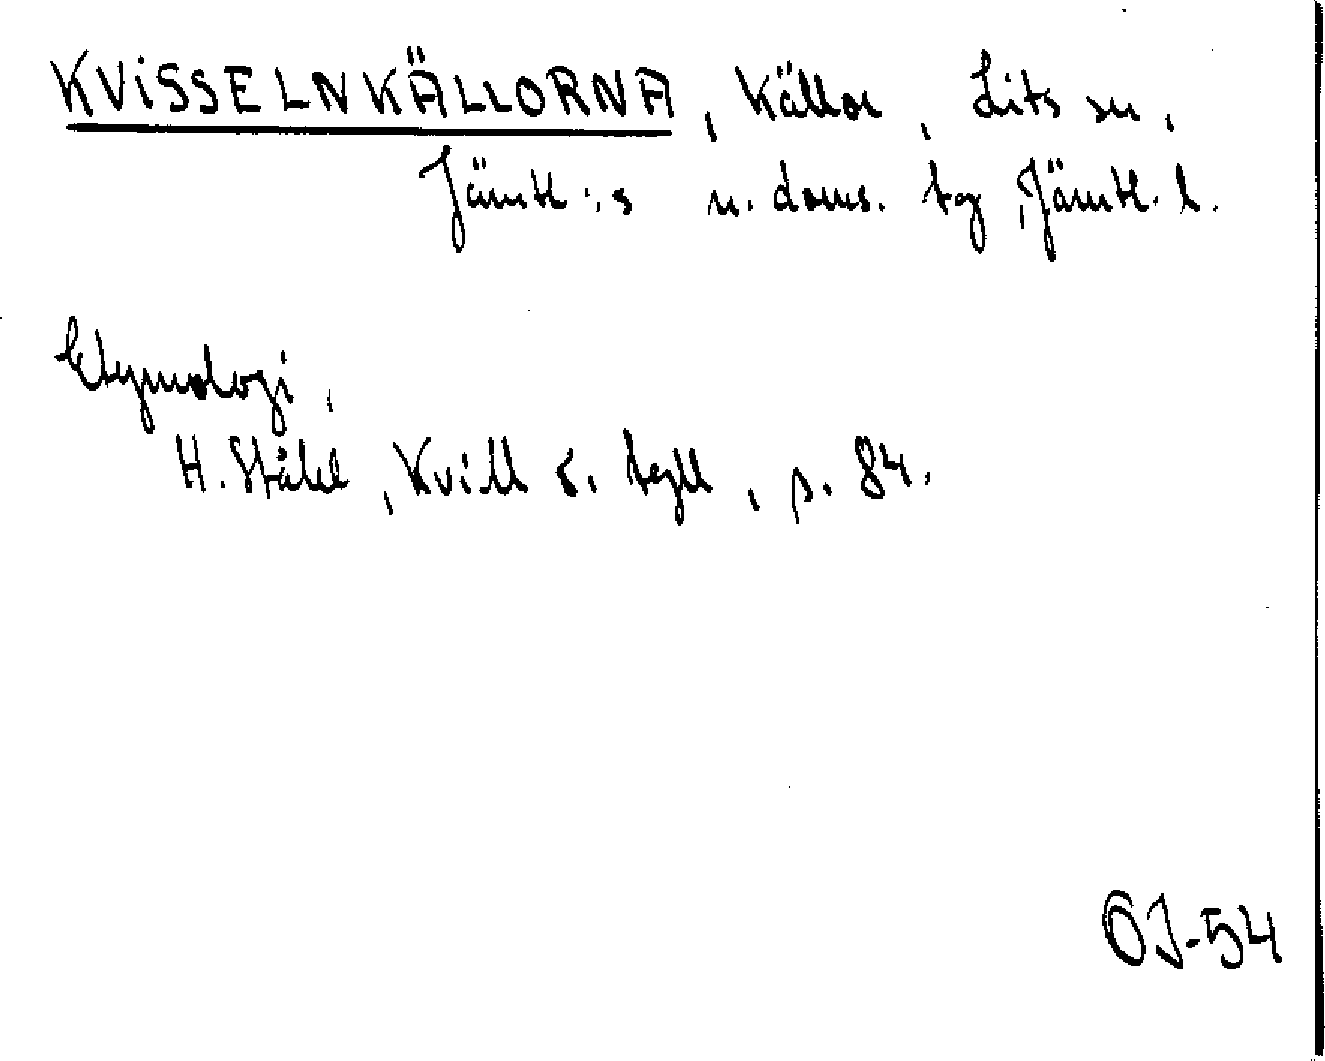 KVISSELNKÄLLORNA, Källor, Lits sn,
Jämtl:s n. doms. tg, Jämtl. l.
Etymologi,
H. Ståhl, Kvill o. tyll, s. 84.
OJ-54